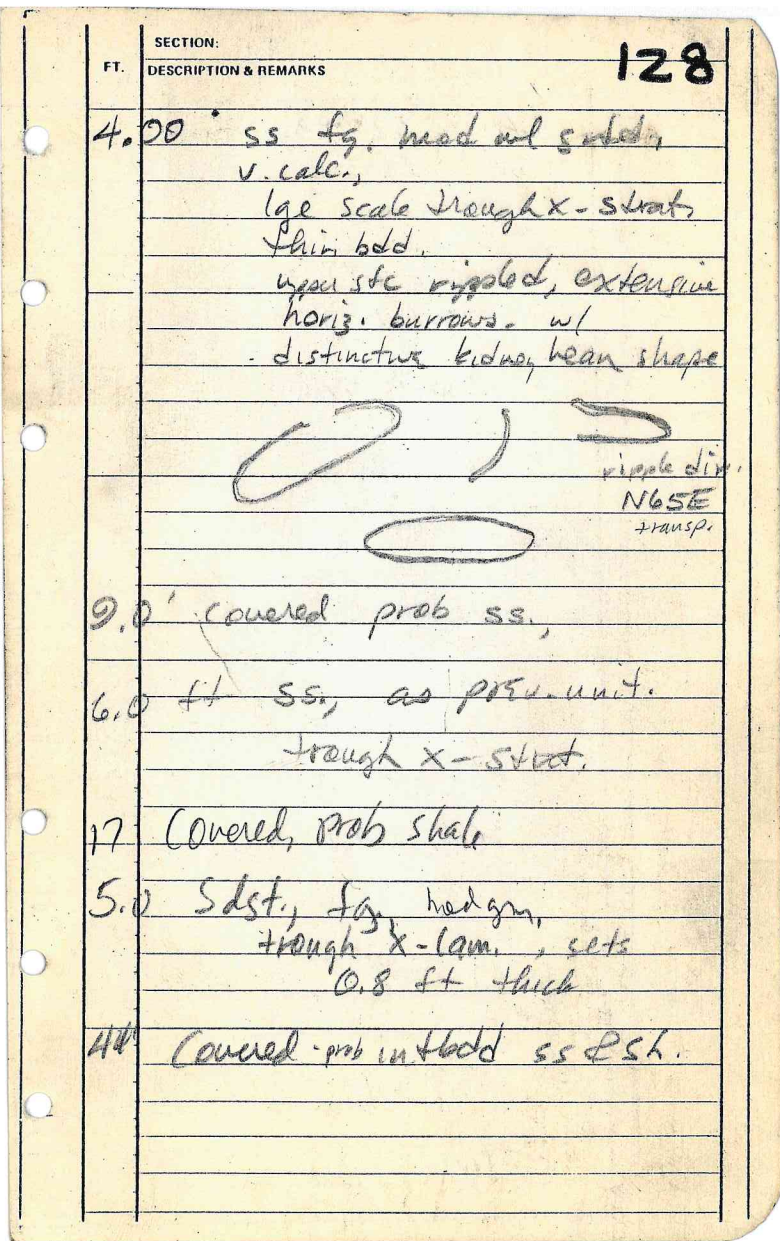 SECTION:
128
FT. DESCRIPTION & REMARKS
4.00' ss fg. mod wl srtd,
v. calc.,
lge scale trough x-strat,
thin bdd.
upper sfc rippled, extensive
horiz. burrows. w/
distinctive kidney bean shape
ripple dir.
N65E
transp.
9.0' covered prob ss.,
6.0 ft ss., as prev. unit.
trough x-strat.
17 Covered, prob shale
5.0 Sdst., fg.,
trough x-lam., sets
0.8 ft thick
Covered - prob intbdd ss & sh.